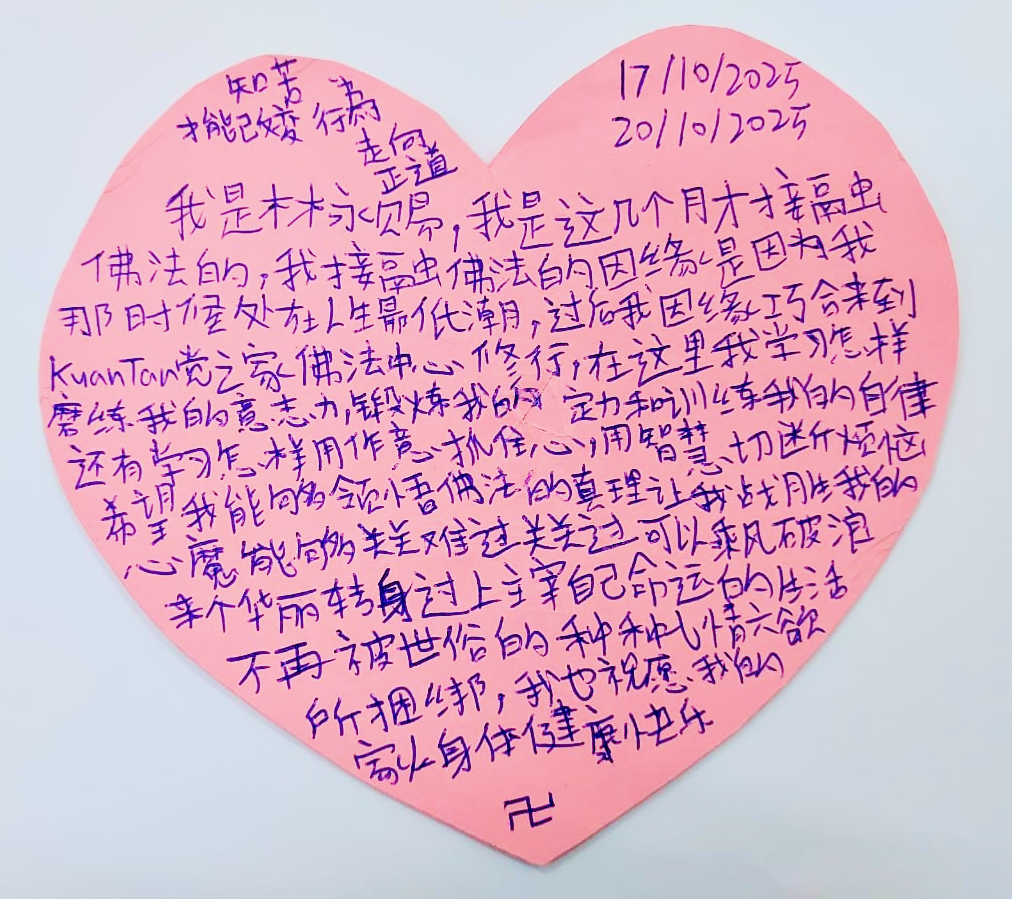 知苦
才能改变 行为
走向
正道
17/10/2025
20/10/2025
我是林永赐,我是这几个月才接触
佛法的,我接触佛法的因缘是因为我
那时候处在人生最低潮,过后我因缘巧合来到
KuanTan觉之家佛法中心修行,在这里我学习怎样
磨练我的意志力,锻炼我的定力和训练我的自律
还有学习怎样用作意抓住心,用智慧切断烦恼
希望我能够领悟佛法的真理让我战胜我的
心魔能够关关难过关关过可以乘风破浪
来个华丽转身过上主宰自己命运的生活
不再被世俗的种种七情六欲
所捆绑,我也祝愿我的
家人身体健康快乐
卍